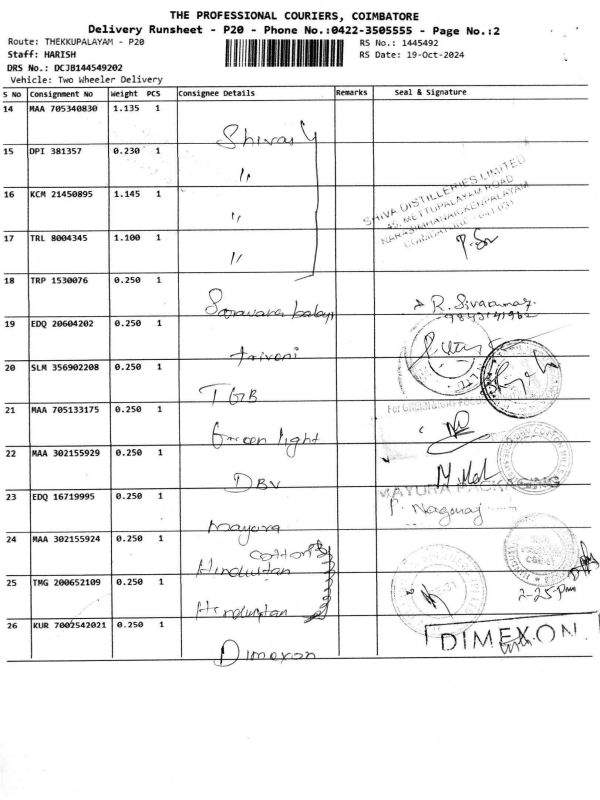 THE PROFESSIONAL COURIERS, COIMBATORE
Delivery Runsheet - P20 - Phone No.:0422-3505555 - Page No.:2
Route: THEKKUPALAYAM - P20 RS No.: 1445492
Staff: HARISH RS Date: 19-Oct-2024
DRS No.: DCJB144549202
Vehicle: Two Wheeler Delivery
S No Consignment No Weight PCS Consignee Details Remarks Seal & Signature
14 MAA 705340830 1.135 1
Shivas
15 DPI 381357 0.230 1
"
SHIVA DISTILLERIES LIMITED
16 KCM 21450895 1.145 1
45, METTUPALAYAM ROAD
"
NARASIMHANAICKENPALAYAM
17 TRL 8004345 1.100 1
COIMBATORE - 641 031
"
18 TRP 1530076 0.250 1
Saravana balaji R. Sivakumar
9843141962
19 EDQ 20604202 0.250 1
triveni
20 SLM 356902208 0.250 1
TGB
21 MAA 705133175 0.250 1
Green light
22 MAA 302155929 0.250 1
DBV
MAYURA PACKAGING
23 EDQ 16719995 0.250 1
P. Nagaraj
Mayura
24 MAA 302155924 0.250 1
cotton
Hindustan
25 TMG 200652109 0.250 1
2-25-Pm
Hindustan
26 KUR 7002542021 0.250 1
DIMEXON
Dimexon